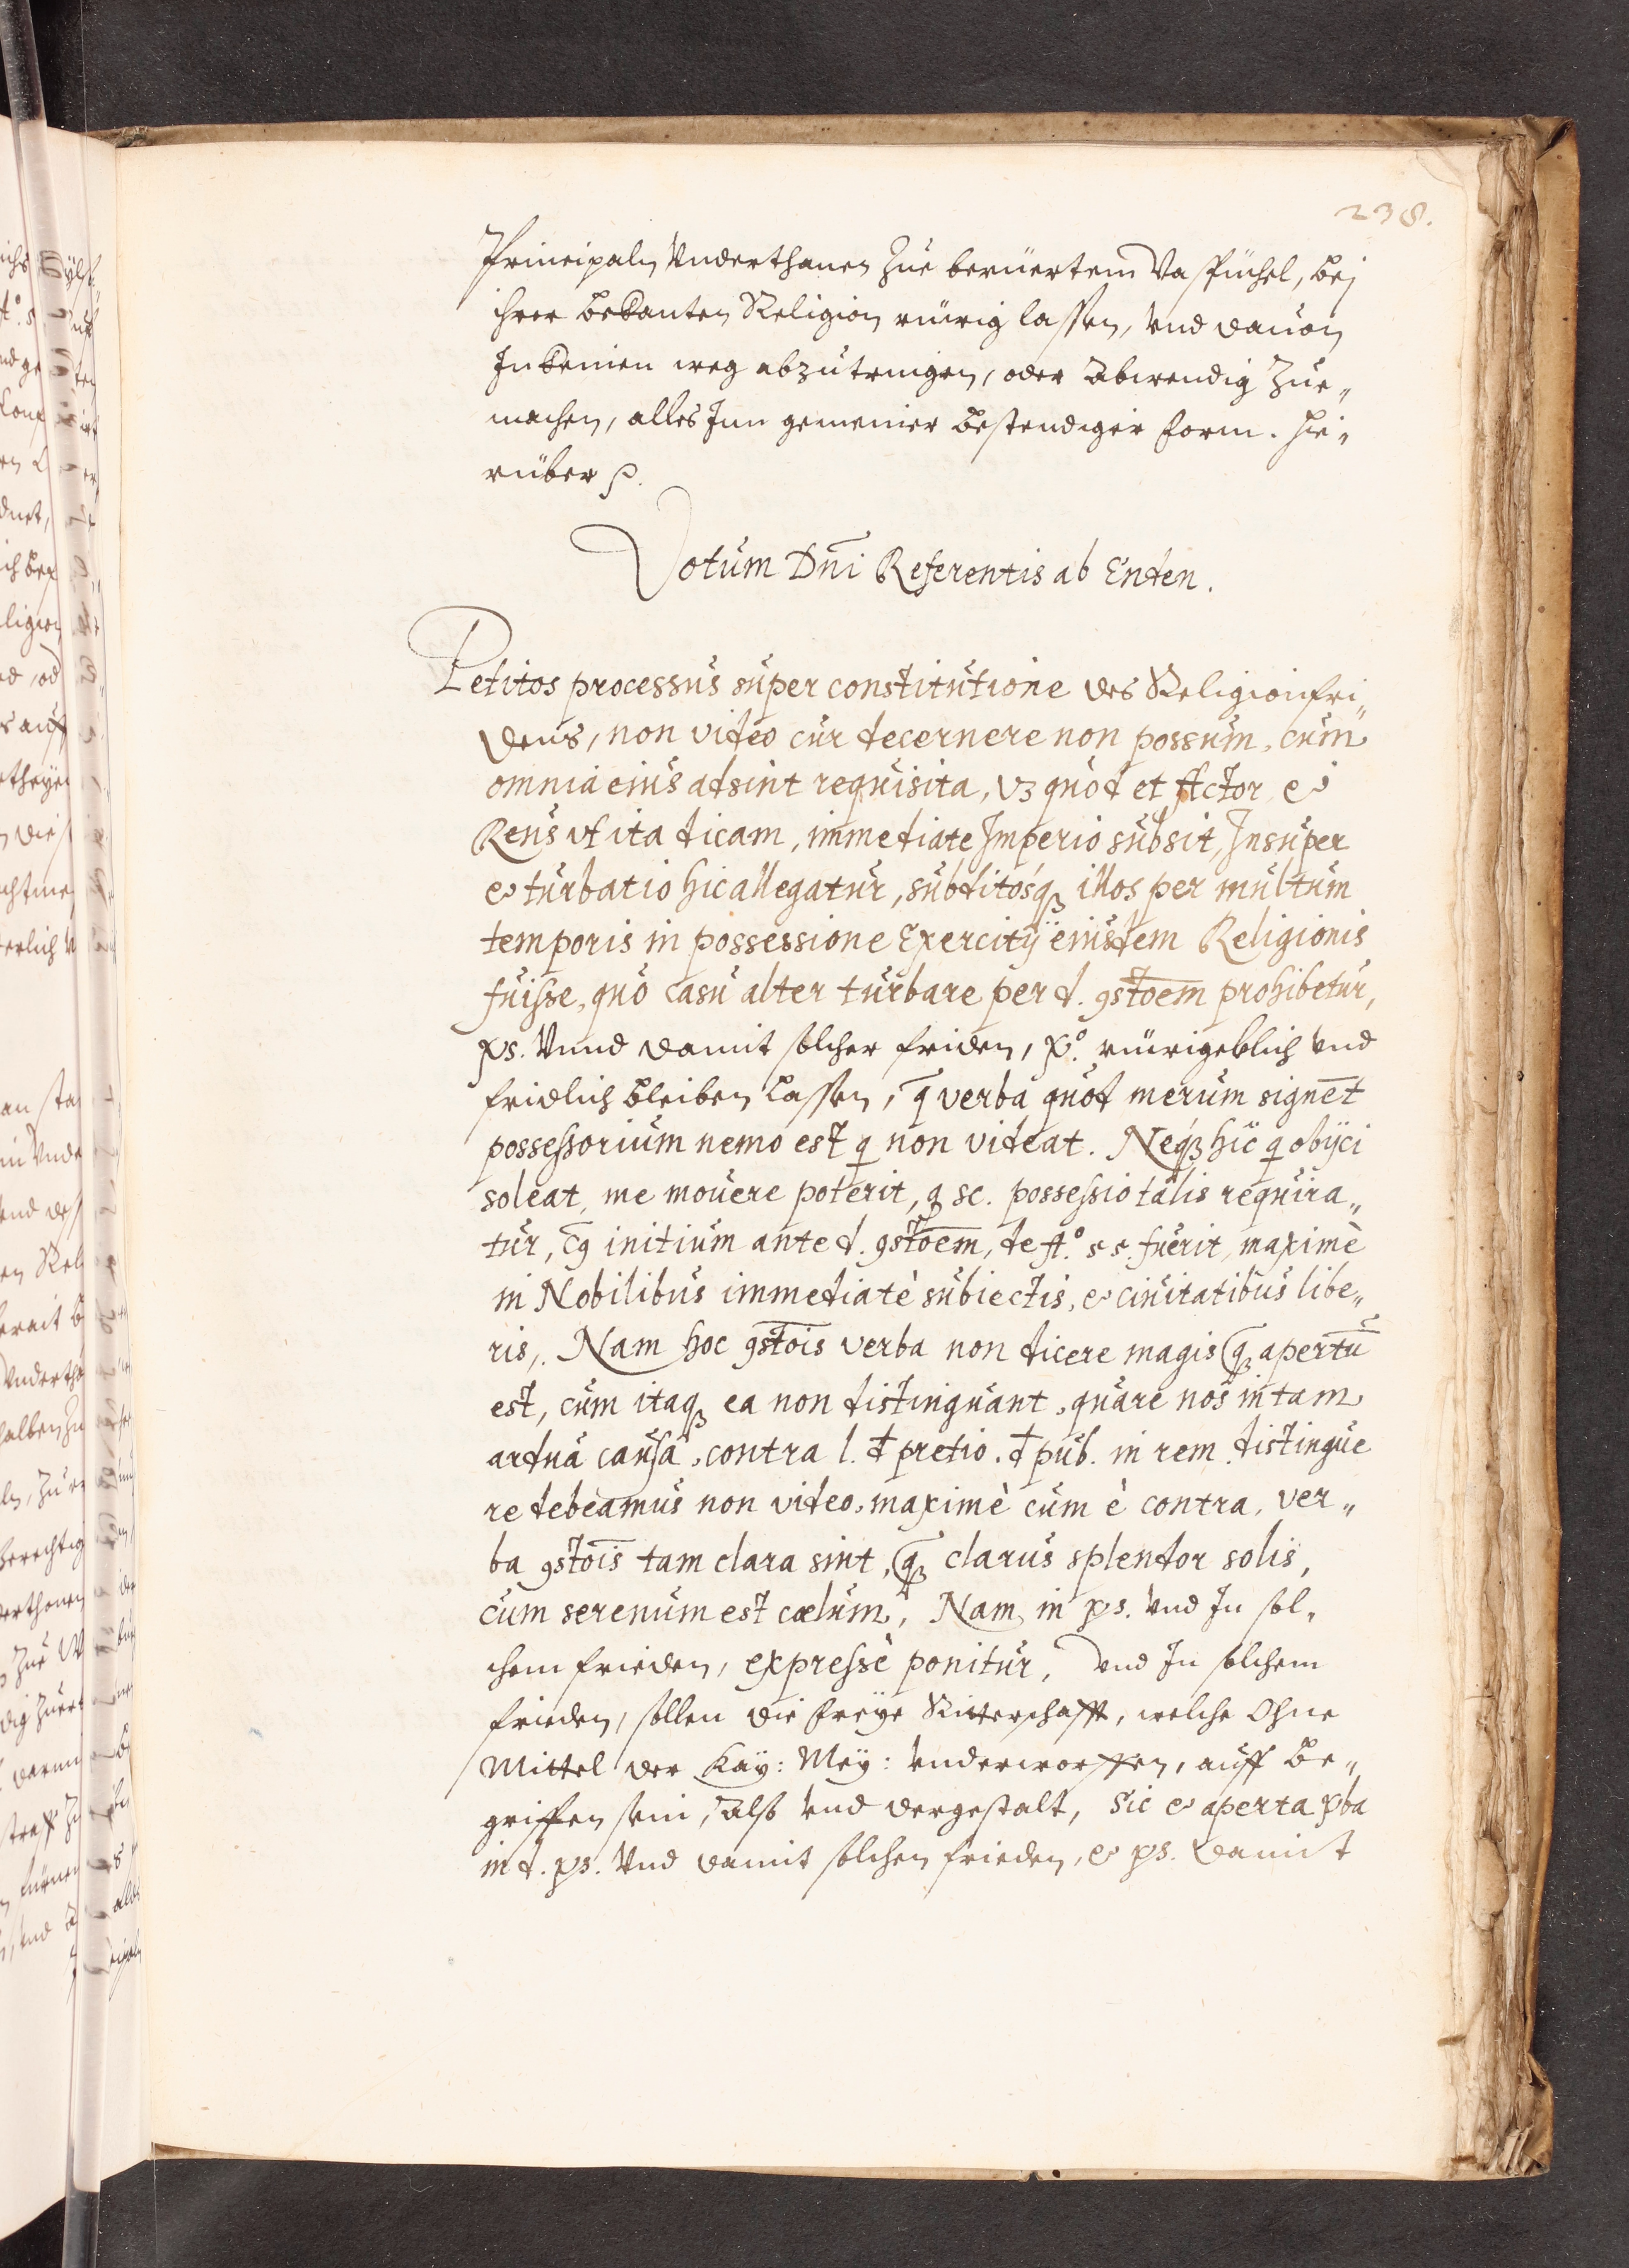 238.
Principaln Vnderthanen zue berüertem Vaspüchel, bej
ihrer bekanten Religion rüwig lassen, vnd dauon
In keinen weg abzutringen, oder abwendig zue„
machen, alles Inn gemeiner bestendiger form. Hie„
rüber p.
Votum Dnī Referentis ab Enden.
Petitos processus super constitutione des Religionfri„
dens, non video cur decernere non possum, cum
omnia eius adsint requisita, vz quòd et Actor, et
Reus vt ita dicam, immediate Imperio subsit, Insuper
et turbatio hic allegatur, subditosq, illos per multum
temporis in possessione Exercitij eiusdem Religionis
fuisse, quo casu alter turbare per d. 9stōem prohibetur,
ps. Vnnd damit solcher friden, p.º rüwigeklich vnd
fridlich bleiben lassen, q̄ verba quod merum signēt
possessorium nemo est q non videat. Neq3 hic q obijci
soleat, me mouere poterit, q sc. possessio talis requira„
tur, c9 initium ante d. 9stōem, de Aº. 55. fuerit, maximè
in Nobilibus immediatè subiectis, et ciuitatibus libe„
ris,. Nam hoc 9stōis verba non dicere magis q3 apertū
est, cum itaq3 ea non distinguant, quare nos in tam
ardua causa, contra l. d pretio. d pub. in rem distingue
re debeamus non video, maximè cum è contra, ver„
ba 9stōis tam clara sint, q3 clarus splendor solis,
cum serenum est cælum, Nam in ps. vnd In sol„
chem frieden, expressè ponitur, vnd In solchem
frieden, sollen die freye Ritterschafft, welche Ohne
Mittel der Kay: May: vnderworffen, auff be„
griffen sein, Also vnd dergestalt, sic et aperta vba
in d. ps. Vnd damit solchen frieden, et ps. damit